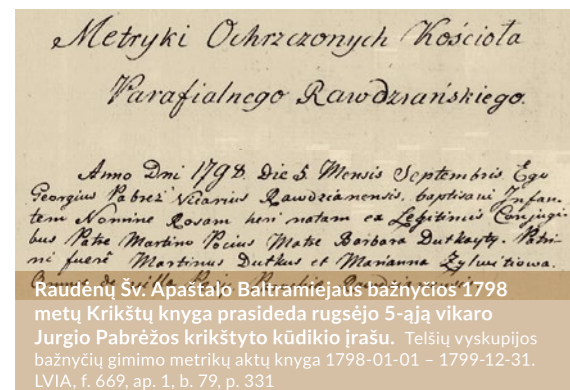 Metryki Ochrzczonych Kościoła
Parafialnego Rawdziańskiego.
Anno Dni 1798. Die 5. Mensis Septembris Ego
Georgius Pabreż Vicarius Rawdzianensis, baptisavi Infan-
tem Nomine Rosam heri natam ex Legitimis Conjugi-
bus Patre Martino Pocius Matre Barbara Dutkayty. Patri-
ni fuere Martinus Dutkus et Marianna Zylwitiowa.
Omnes de villa
Raudėnų Šv. Apaštalo Baltramiejaus bažnyčios 1798
metų Krikštų knyga prasideda rugsėjo 5-ąją vikaro
Jurgio Pabrėžos krikštyto kūdikio įrašu. Telšių vyskupijos
bažnyčių gimimo metrikų aktų knyga 1798-01-01 – 1799-12-31.
LVIA, f. 669, ap. 1, b. 79, p. 331